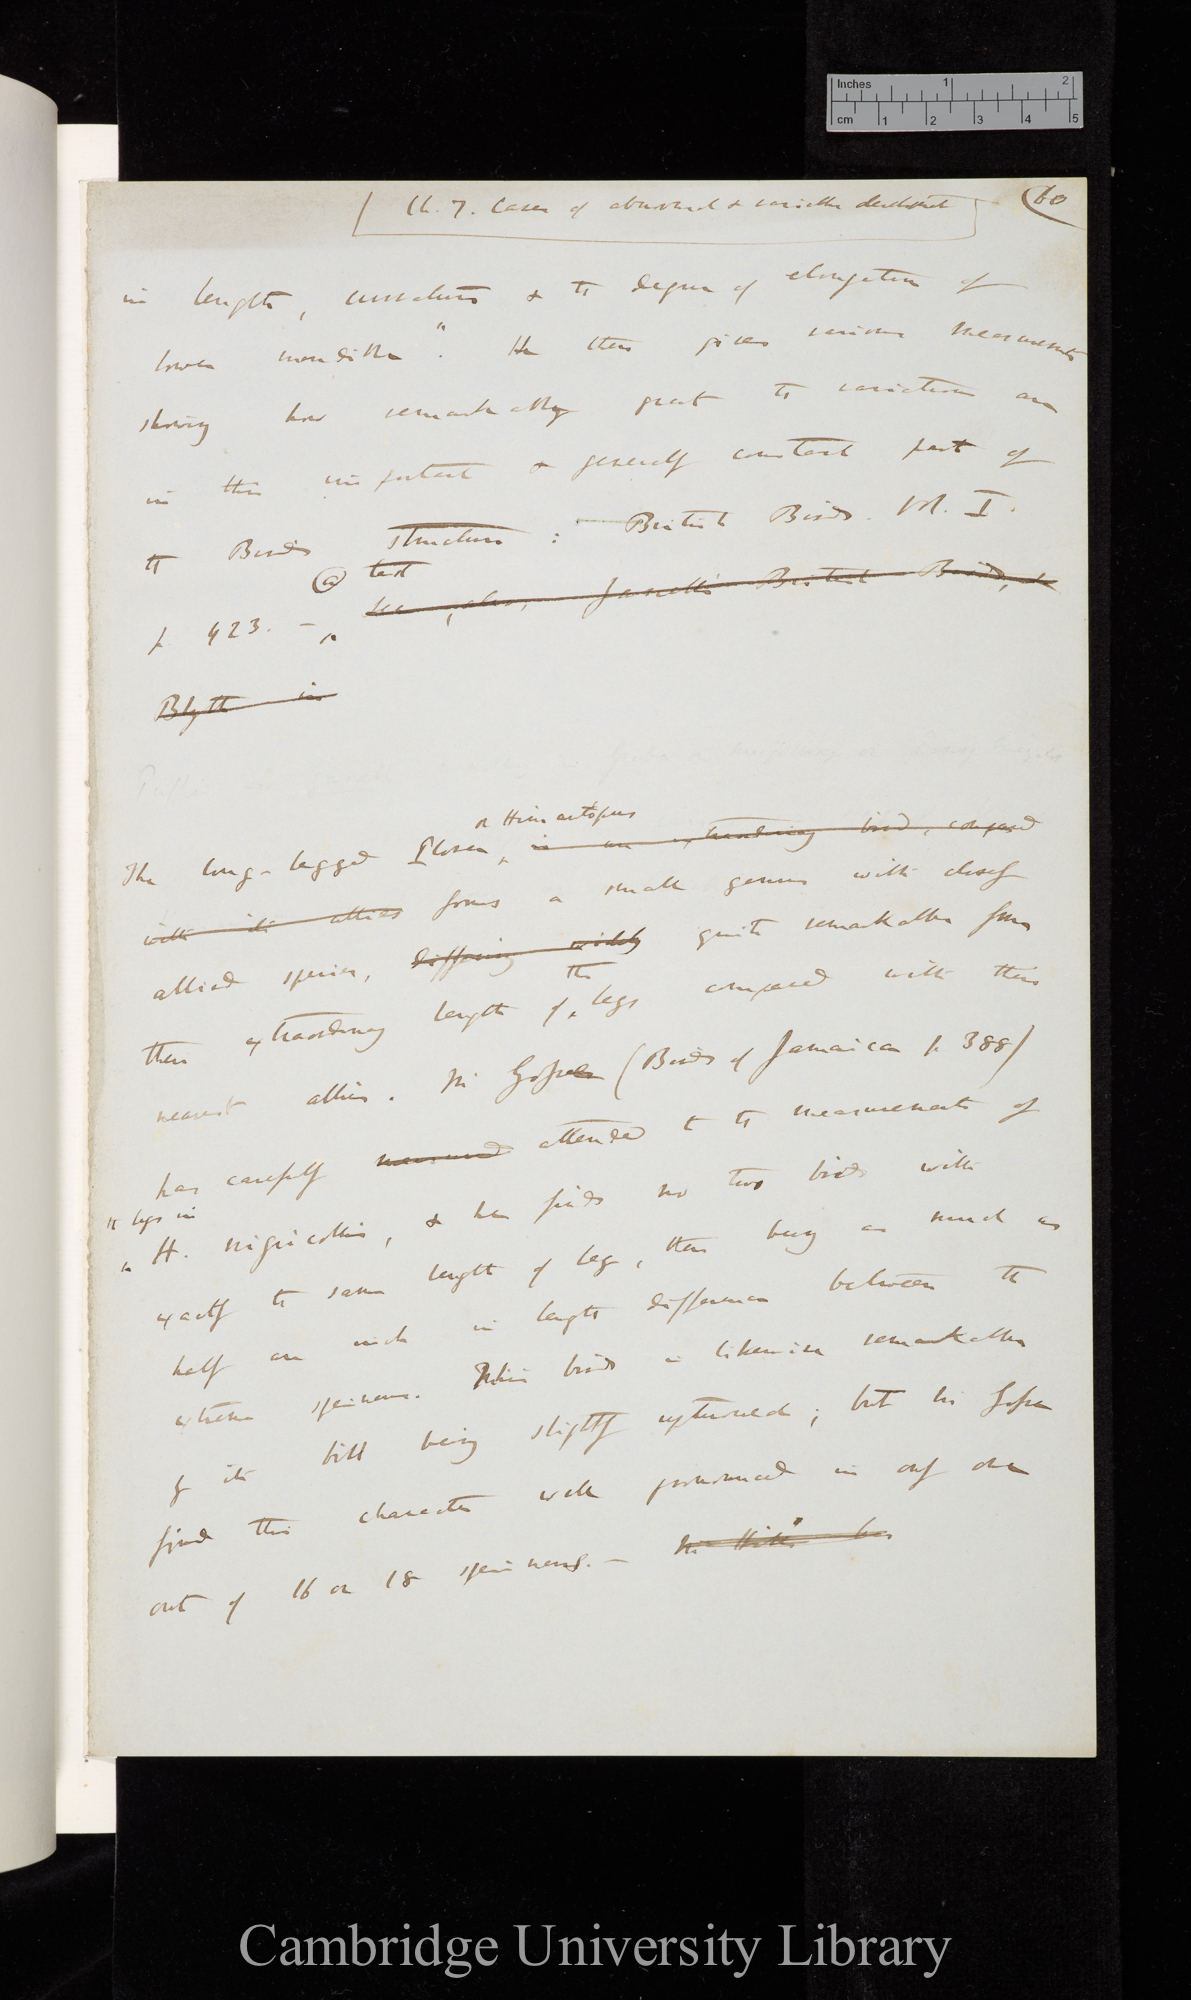 Inches 1 2
cm 1 2 3 4 5
Ch. 7. Cases of abnormal & variable
60
in length, curvature & the degree of elongation of
lower mandible". He then gives various measurements
showing how remarkably great the variations are
in this important & generally constant part of
the Birds structure: British Birds. Vol. I.
(a) text
p. 423. — see, also, Yarrell's British Birds,
Blyth in
or Himantopus
The long-legged Plover, is an extraordinary bird, compared
with its allies forms a small genus with closely
allied species, differing widely quite remarkable from
the
their extraordinary length of legs compared with their
nearest allies. Mr Gosse (Birds of Jamaica p. 388)
has carefully measured attended to the measurements of
the legs in
H. nigricollis, & he finds no two birds with
exactly the same length of leg, there being as much as
half an inch in length difference between the
extreme specimens. This bird is likewise remarkable
by its bill being slightly upturned; but Mr Gosse
finds this character well pronounced in only one
out of 16 or 18 specimens. — Mr Hill has
Cambridge University Library